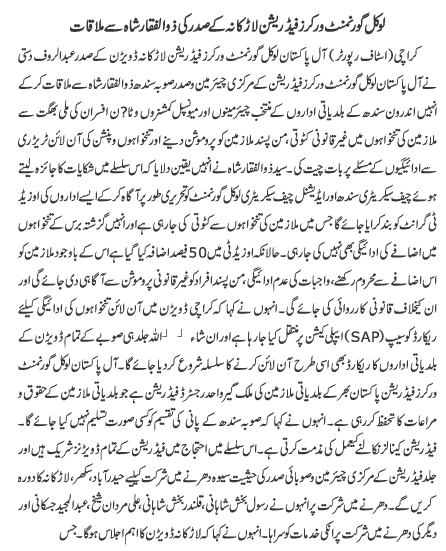 لوکل گورنمنٹ ورکرز فیڈریشن لاڑکانہ کے صدر کی ذوالفقار شاہ سے ملاقات
کراچی (اسٹاف رپورٹر) آل پاکستان لوکل گورنمنٹ ورکرز فیڈریشن لاڑکانہ ڈویژن کے صدر عبدالرؤف دستی
نے آل پاکستان لوکل گورنمنٹ ورکرز فیڈریشن کے مرکزی چیئرمین و صدر صوبہ سندھ ذوالفقار شاہ سے ملاقات کر کے
انہیں اندرون سندھ کے بلدیاتی اداروں کے منتخب چیئرمینوں اور میونسپل کمشنروں و ٹا?ن افسران کی ملی بھگت سے
ملازمین کی تنخواہوں میں غیر قانونی کٹوتی، من پسند ملازمین کو پروموشن دینے اور تنخواہوں و پنشن کی آن لائن ٹریژری
سے ادائیگیوں کے مسئلے پر بات چیت کی۔ سید ذوالفقار شاہ نے انہیں یقین دلایا کہ اس سلسلے میں شکایات کا جائزہ لیتے
ہوئے چیف سیکریٹری سندھ اور ایڈیشنل چیف سیکریٹری لوکل گورنمنٹ کو تحریری طور پر آگاہ کر کے ایسے اداروں کی او زیڈ
ٹی گرانٹ کو بند کرایا جائے گا جس میں ملازمین کی تنخواہوں سے کٹوتی کی جا رہی ہے اور انہیں گزشتہ برس کے تنخواہوں
میں اضافے کی ادائیگی بھی نہیں کی جا رہی۔ حالانکہ او زیڈ ٹی میں 50 فیصد اضافہ کیا گیا ہے اس کے باوجود ملازمین کو
اس اضافے سے محروم رکھنے، واجبات کی عدم ادائیگی، من پسند افراد کو غیر قانونی پروموشن سے آگاہی دی جائے گی اور
ان کیخلاف قانونی کارروائی کی جائے گی۔ انہوں نے کہا کہ کراچی ڈویژن میں آن لائن تنخواہوں کی ادائیگی کیلئے
ریکارڈ کو سیپ (SAP) ایپلی کیشن پر منتقل کیا جا رہا ہے اور ان شاء اللہ جلد ہی صوبے کے تمام ڈویژن کے
بلدیاتی اداروں کا ریکارڈ بھی اسی طرح آن لائن کرنے کا سلسلہ شروع کر دیا جائے گا۔ آل پاکستان لوکل گورنمنٹ
ورکرز فیڈریشن پاکستان بھر کے بلدیاتی ملازمین کی ملک گیر واحد رجسٹرڈ فیڈریشن ہے جو بلدیاتی ملازمین کے حقوق و
مراعات کا تحفظ کر رہی ہے۔ انہوں نے کہا کہ صوبہ سندھ کے پانی کی تقسیم کو کسی صورت تسلیم نہیں کیا جائے گا۔
فیڈریشن کینالز نکالنے کیعمل کی مذمت کرتی ہے۔ اس سلسلے میں احتجاج میں فیڈریشن کے تمام ڈویژنز شریک ہیں اور
جلد فیڈریشن کے مرکزی چیئرمین و صوبائی صدر کی حیثیت سیوہ دھرنے میں شرکت کیلیے حیدرآباد، سکھر، لاڑکانہ کا دورہ
کریں گے۔ دھرنے میں شرکت پر انہوں نے رسول بخش شاہانی، قلندر بخش شاہانی، علی مردان شیخ، عبدالمجید جسکانی اور
دیگر کی دھرنے میں شرکت پر انکی خدمات کو سراہا۔ انہوں نے کہا کہ لاڑکانہ ڈویژن کا اہم اجلاس ہوگا۔ جس